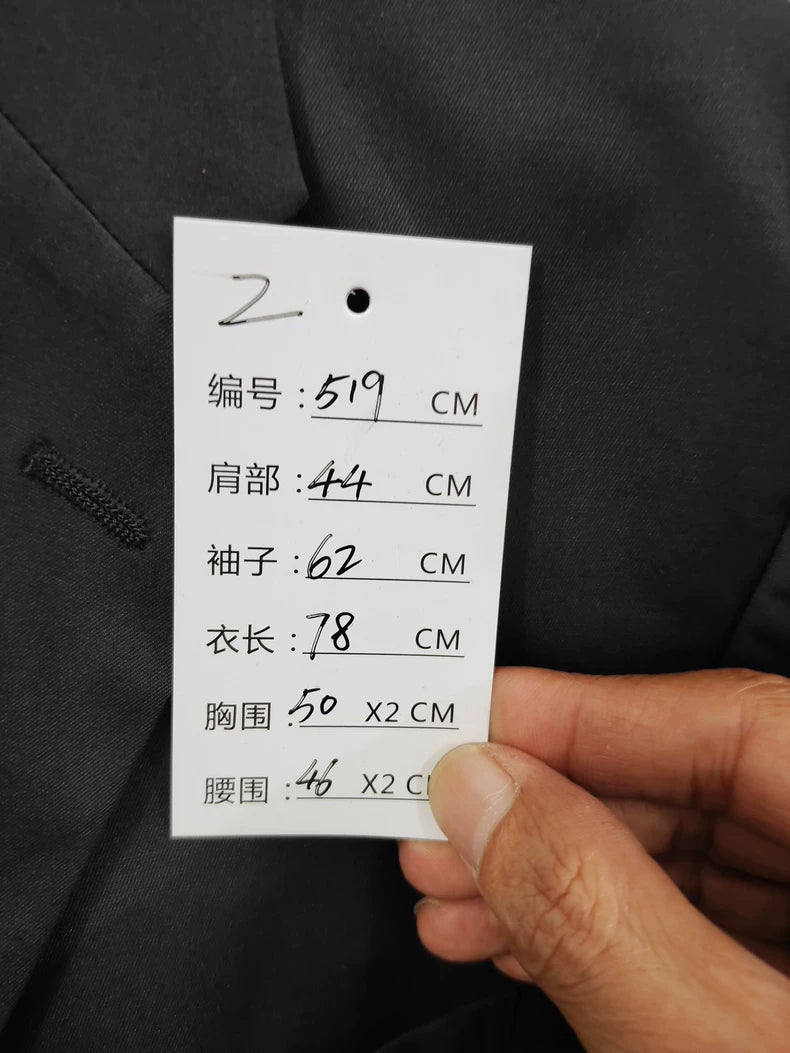 2
编号：519 CM
肩部：44 CM
袖子：62 CM
衣长：78 CM
胸围：50 X2 CM
腰围：46 X2 C